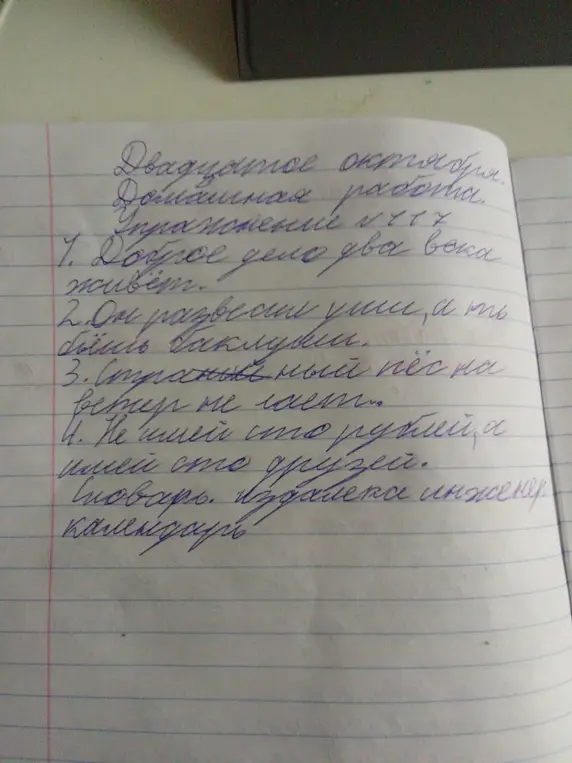 Двадцатое октября.
Домашная работа.
Упражнение №117
1. Доброе дело два века
живёт.
2. Он развесил уши, а ты
бьёшь баклуши.
3. Стра ный пёс на
ветер не лает.
4. Не имей сто рублей, а
имей сто друзей.
Словарь. издалека инженер
календарь